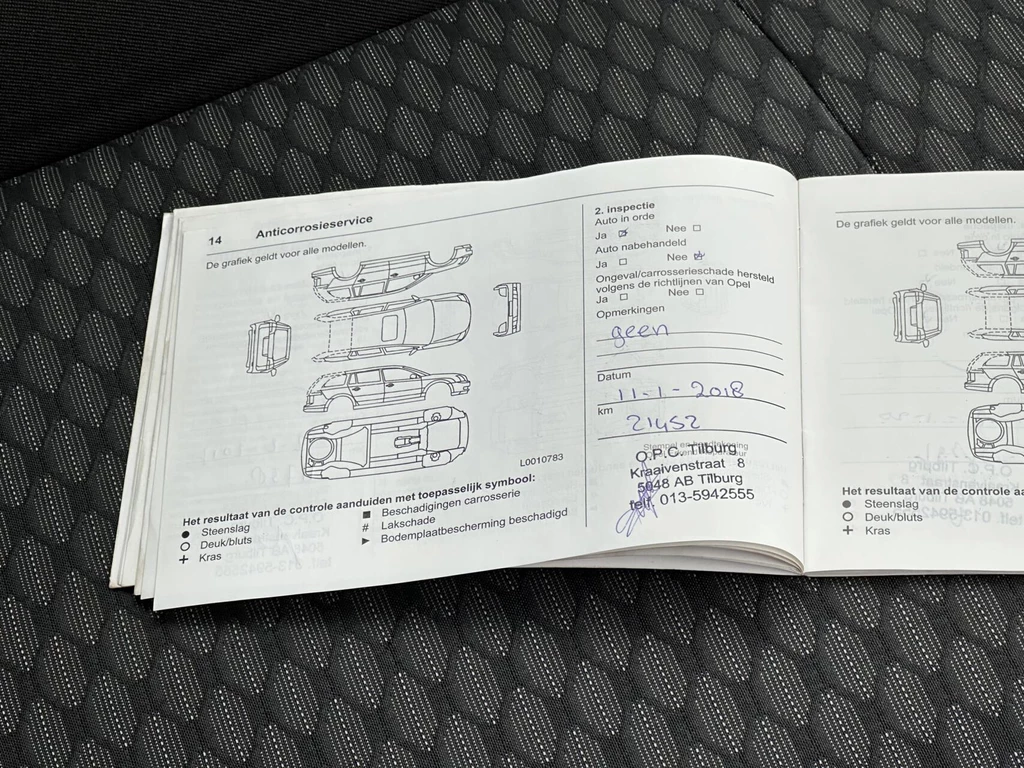 14 Anticorrosieservice
De grafiek geldt voor alle modellen.
L0010783
Het resultaat van de controle aanduiden met toepasselijk symbool:
● Steenslag
○ Deuk/bluts
+ Kras
■ Beschadigingen carrosserie
# Lakschade
► Bodemplaatbescherming beschadigd
2. inspectie
Auto in orde
Ja Nee
Auto nabehandeld
Ja Nee
Ongeval/carrosserieschade hersteld
volgens de richtlijnen van Opel
Ja Nee
Opmerkingen
geen
Datum
11-1-2018
km
21452
O.P.C. Tilburg
Kraaivenstraat 8
5048 AB Tilburg
telf. 013-5942555
De grafiek geldt voor alle modellen.
Het resultaat van de controle aa
● Steenslag
○ Deuk/bluts
+ Kras